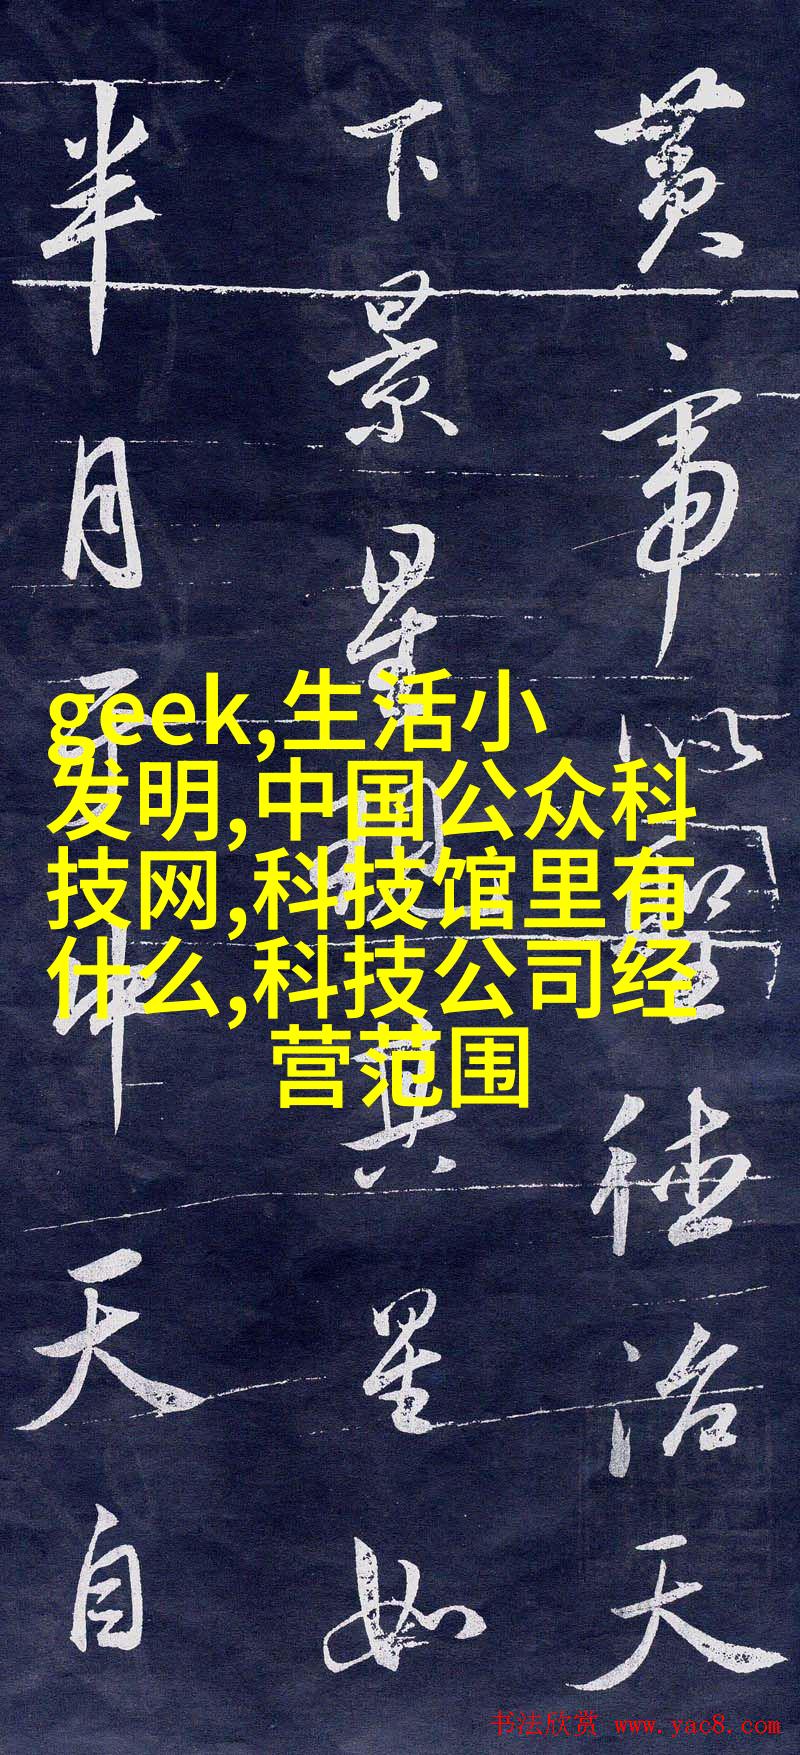 黄帝以聖德治天
下景星現其星如
半月在中天自
geek,生活小
发明,中国公众科
技网,科技馆里有
什么,科技公司经
营范围
书法欣赏 www.yac8.com